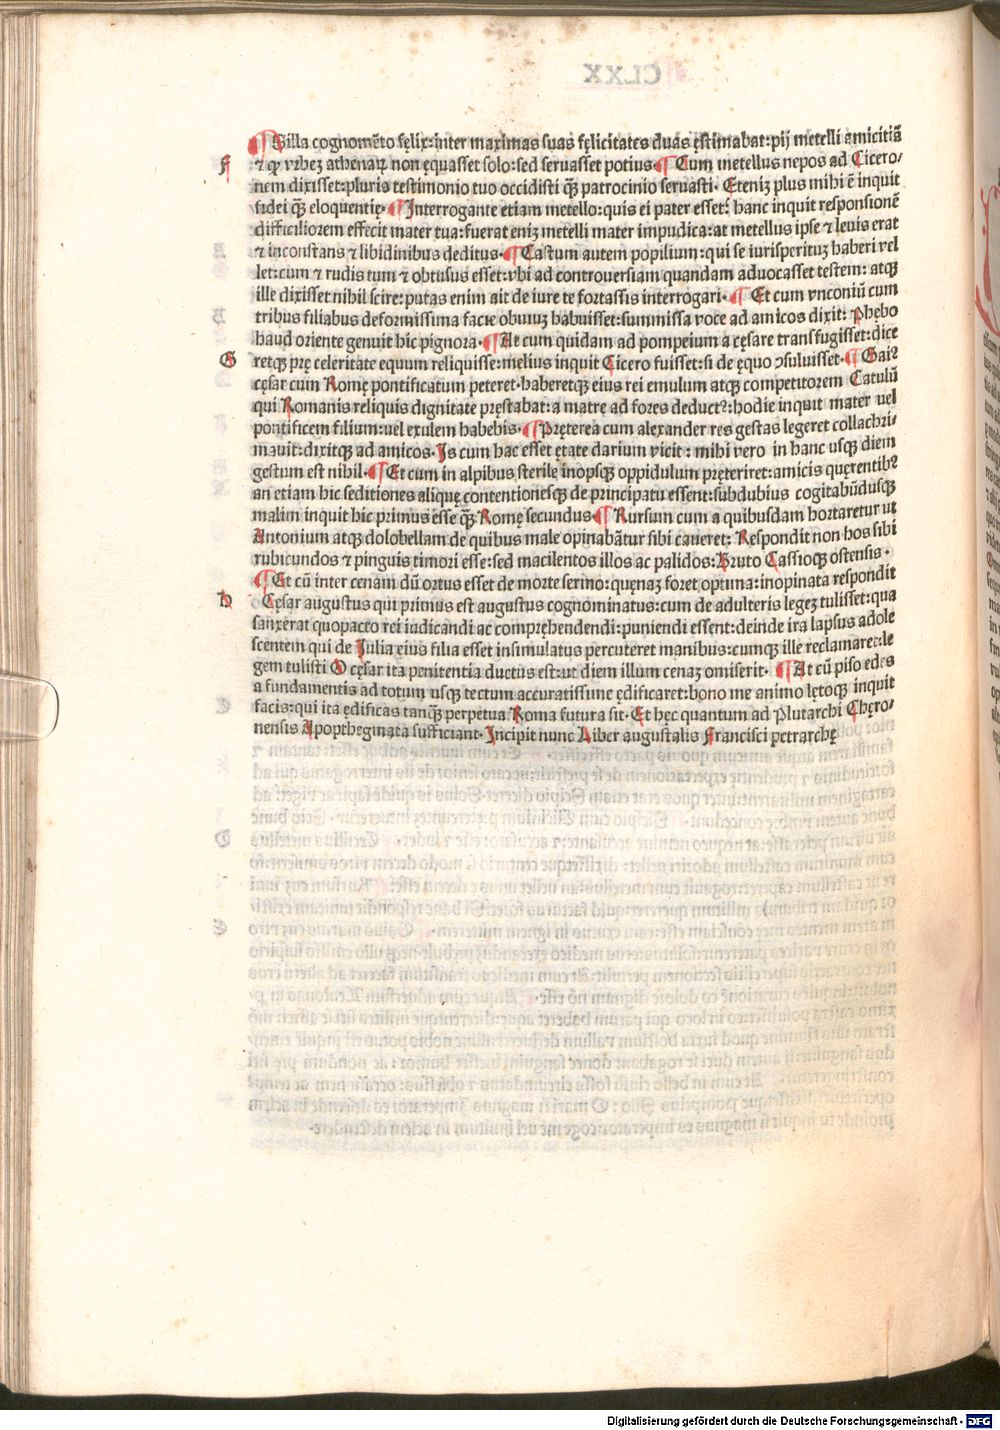 ¶ Silla cognomēto fęlix:inter maximas suas fęlicitates duas ęstimabat:pij metelli amicitiā
F
⁊ ꝙ vrbeꝫ athenaꝝ non ęquasset solo:sed seruasset potius ¶ Cum metellus nepos ad Cicero⸗
nem dixisset:pluris testimonio tuo occidisti q̄ꝫ patrocinio seruasti. Eteniꝫ plus mihi ē inquit
fidei q̄ꝫ eloquentię. ¶ Interrogante etiam metello:quis ei pater esset: hanc inquit responsionē
difficiliorem effecit mater tua:fuerat eniꝫ metelli mater impudica:at metellus ipse ⁊ leuis erat
⁊ inconstans ⁊ libidinibus deditus. ¶ Castum autem popilium:qui se iurisperituꝫ haberi vel
let:cum ⁊ rudis tum ⁊ obtusus esset:vbi ad controuersiam quandam aduocasset testem: atqꝫ
ille dixisset nihil scire:putas enim ait de iure te fortassis interrogari. ¶ Et cum vnconiū cum
tribus filiabus deformissima facie obuiuꝫ habuisset:summissa voce ad amicos dixit: Phębo
haud oriente genuit hic pignora. ¶ At cum quidam ad pompeium a cęsare transfugisset:dice
G
retqꝫ prę celeritate equum reliquisse:melius inquit Cicero fuisset:si de ęquo ↄsuluisset. ¶ Gaiꝰ
cęsar cum Romę pontificatum peteret.haberetqꝫ eius rei emulum atqꝫ competitorem Catulū
qui Romanis reliquis dignitate pręstabat:a matre ad fores deductꝰ:hodie inquit mater vel
pontificem filium:uel exulem habebis. ¶ Pręterea cum alexander res gestas legeret collachri⸗
mauit:dixitqꝫ ad amicos. Is cum hac esset ętate darium vicit: mihi vero in hanc usqꝫ diem
gestum est nihil. ¶ Et cum in alpibus sterile inopsqꝫ oppidulum pręteriret:amicis quęrentibꝰ
an etiam hic seditiones aliquę contentionesqꝫ de principatu essent:subdubius cogitabūdusqꝫ
malim inquit hic primus esse q̄ꝫ Romę secundus ¶ Rursum cum a quibusdam hortaretur ut
Antonium atqꝫ dolobellam de quibus male opinabātur sibi caueret: Respondit non hos sibi
rubicundos ⁊ pinguis timori esse:sed macilentos illos ac palidos:Bruto Cassioqꝫ ostensis.
¶ Et cū inter cenam dū ortus esset de morte sermo:quęnaꝫ foret optima:inopinata respondit
h
Cęsar augustus qui primus est augustus cognominatus:cum de adulteris legeꝫ tulisset:qua
sanxerat quopacto rei iudicandi ac comprehendendi:puniendi essent:deinde ira lapsus adole
scentem qui de Iulia eius filia esset insimulatus percuteret manibus:cumqꝫ ille reclamaret:le
gem tulisti O cęsar ita penitentia ductus est:ut diem illum cenaꝫ omiserit. ¶ At cū piso edes
a fundamentis ad totum usqꝫ tectum accuratissime ędificaret:bono me animo lętoqꝫ inquit
facis:qui ita ędificas tanq̄ꝫ perpetua Roma futura sit. Et hęc quantum ad Plutarchi Chęro⸗
nensis Apopthegmata sufficiant. Incipit nunc Liber augustalis Francisci petrarchę
Digitalisierung gefördert durch die Deutsche Forschungsgemeinschaft - DFG